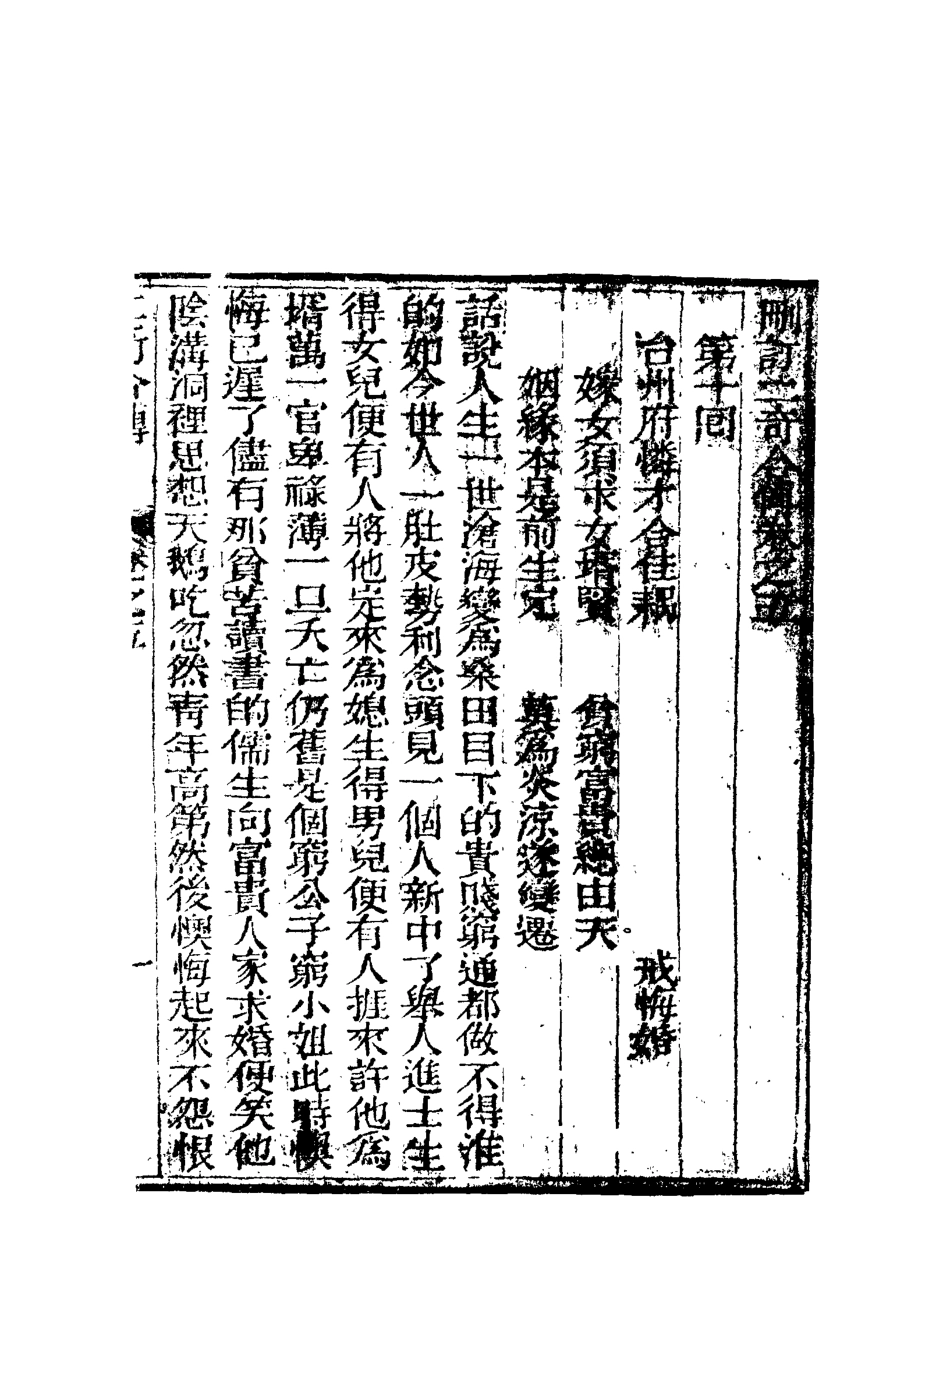 刪訂二奇合傳卷之五
第十回
台州府憐才合佳耦　戒悔婚
嫁女須求女壻賢　貧窮富貴總由天
姻緣本是前生定　莫為炎涼遂變遷
話說人生一世滄海變為桑田目下的貴賤窮通都做不得准
的如今世人一肚皮勢利念頭見一個人新中了舉人進士生
得女兒便有人將他定來為媳生得男兒便有人捱來許他為
壻萬一官卑祿薄一旦夭亡仍舊是個窮公子窮小姐此時懊
悔已遲了儘有那貧苦讀書的儒生向富貴人家求婚便笑他
陰溝洞裡思想天鵝吃忽然靑年高第然後懊悔起來不怨恨
二奇合傳　卷之五　一